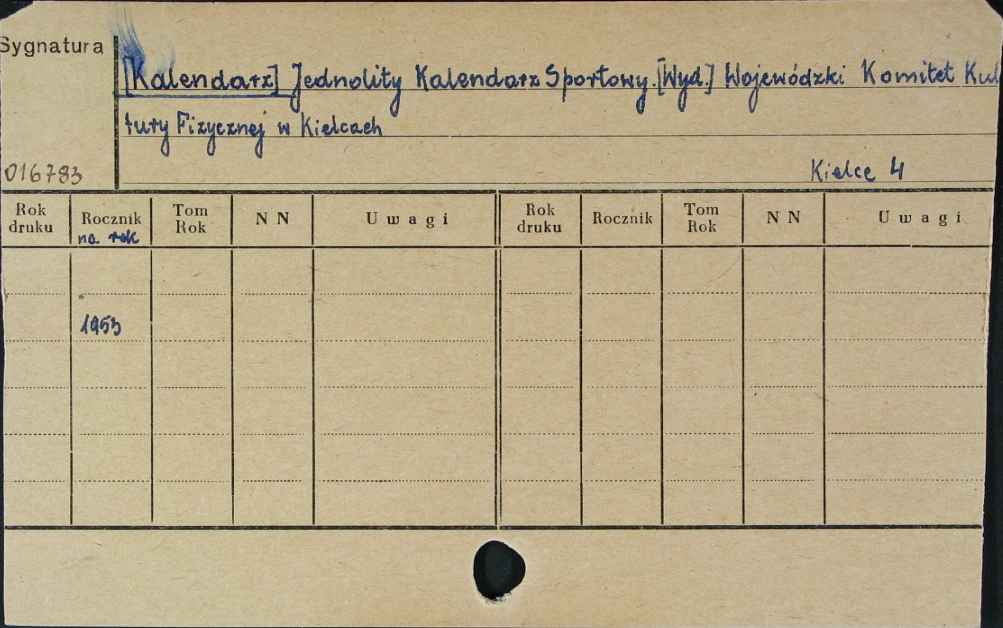 Sygnatura
[Kalendarz] Jednolity Kalendarz Sportowy. [Wyd.] Wojewódzki Komitet Kul
tury Fizycznej w Kielcach
016783
Kielce 4
Rok druku Rocznik na rok Tom Rok N N Uwagi Rok druku Rocznik Tom Rok N N Uwagi
1953